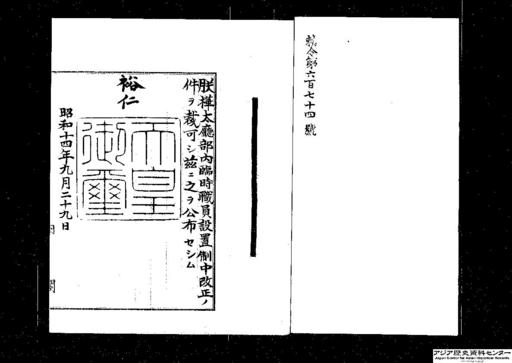 勅令第六百七十四號
朕樺太廳部内臨時職員設置制中改正ノ
件ヲ裁可シ茲ニ之ヲ公布セシム
裕仁
天皇御璽
昭和十四年九月二十九日
内閣
アジア歴史資料センター
Japan Center for Asian Historical Records